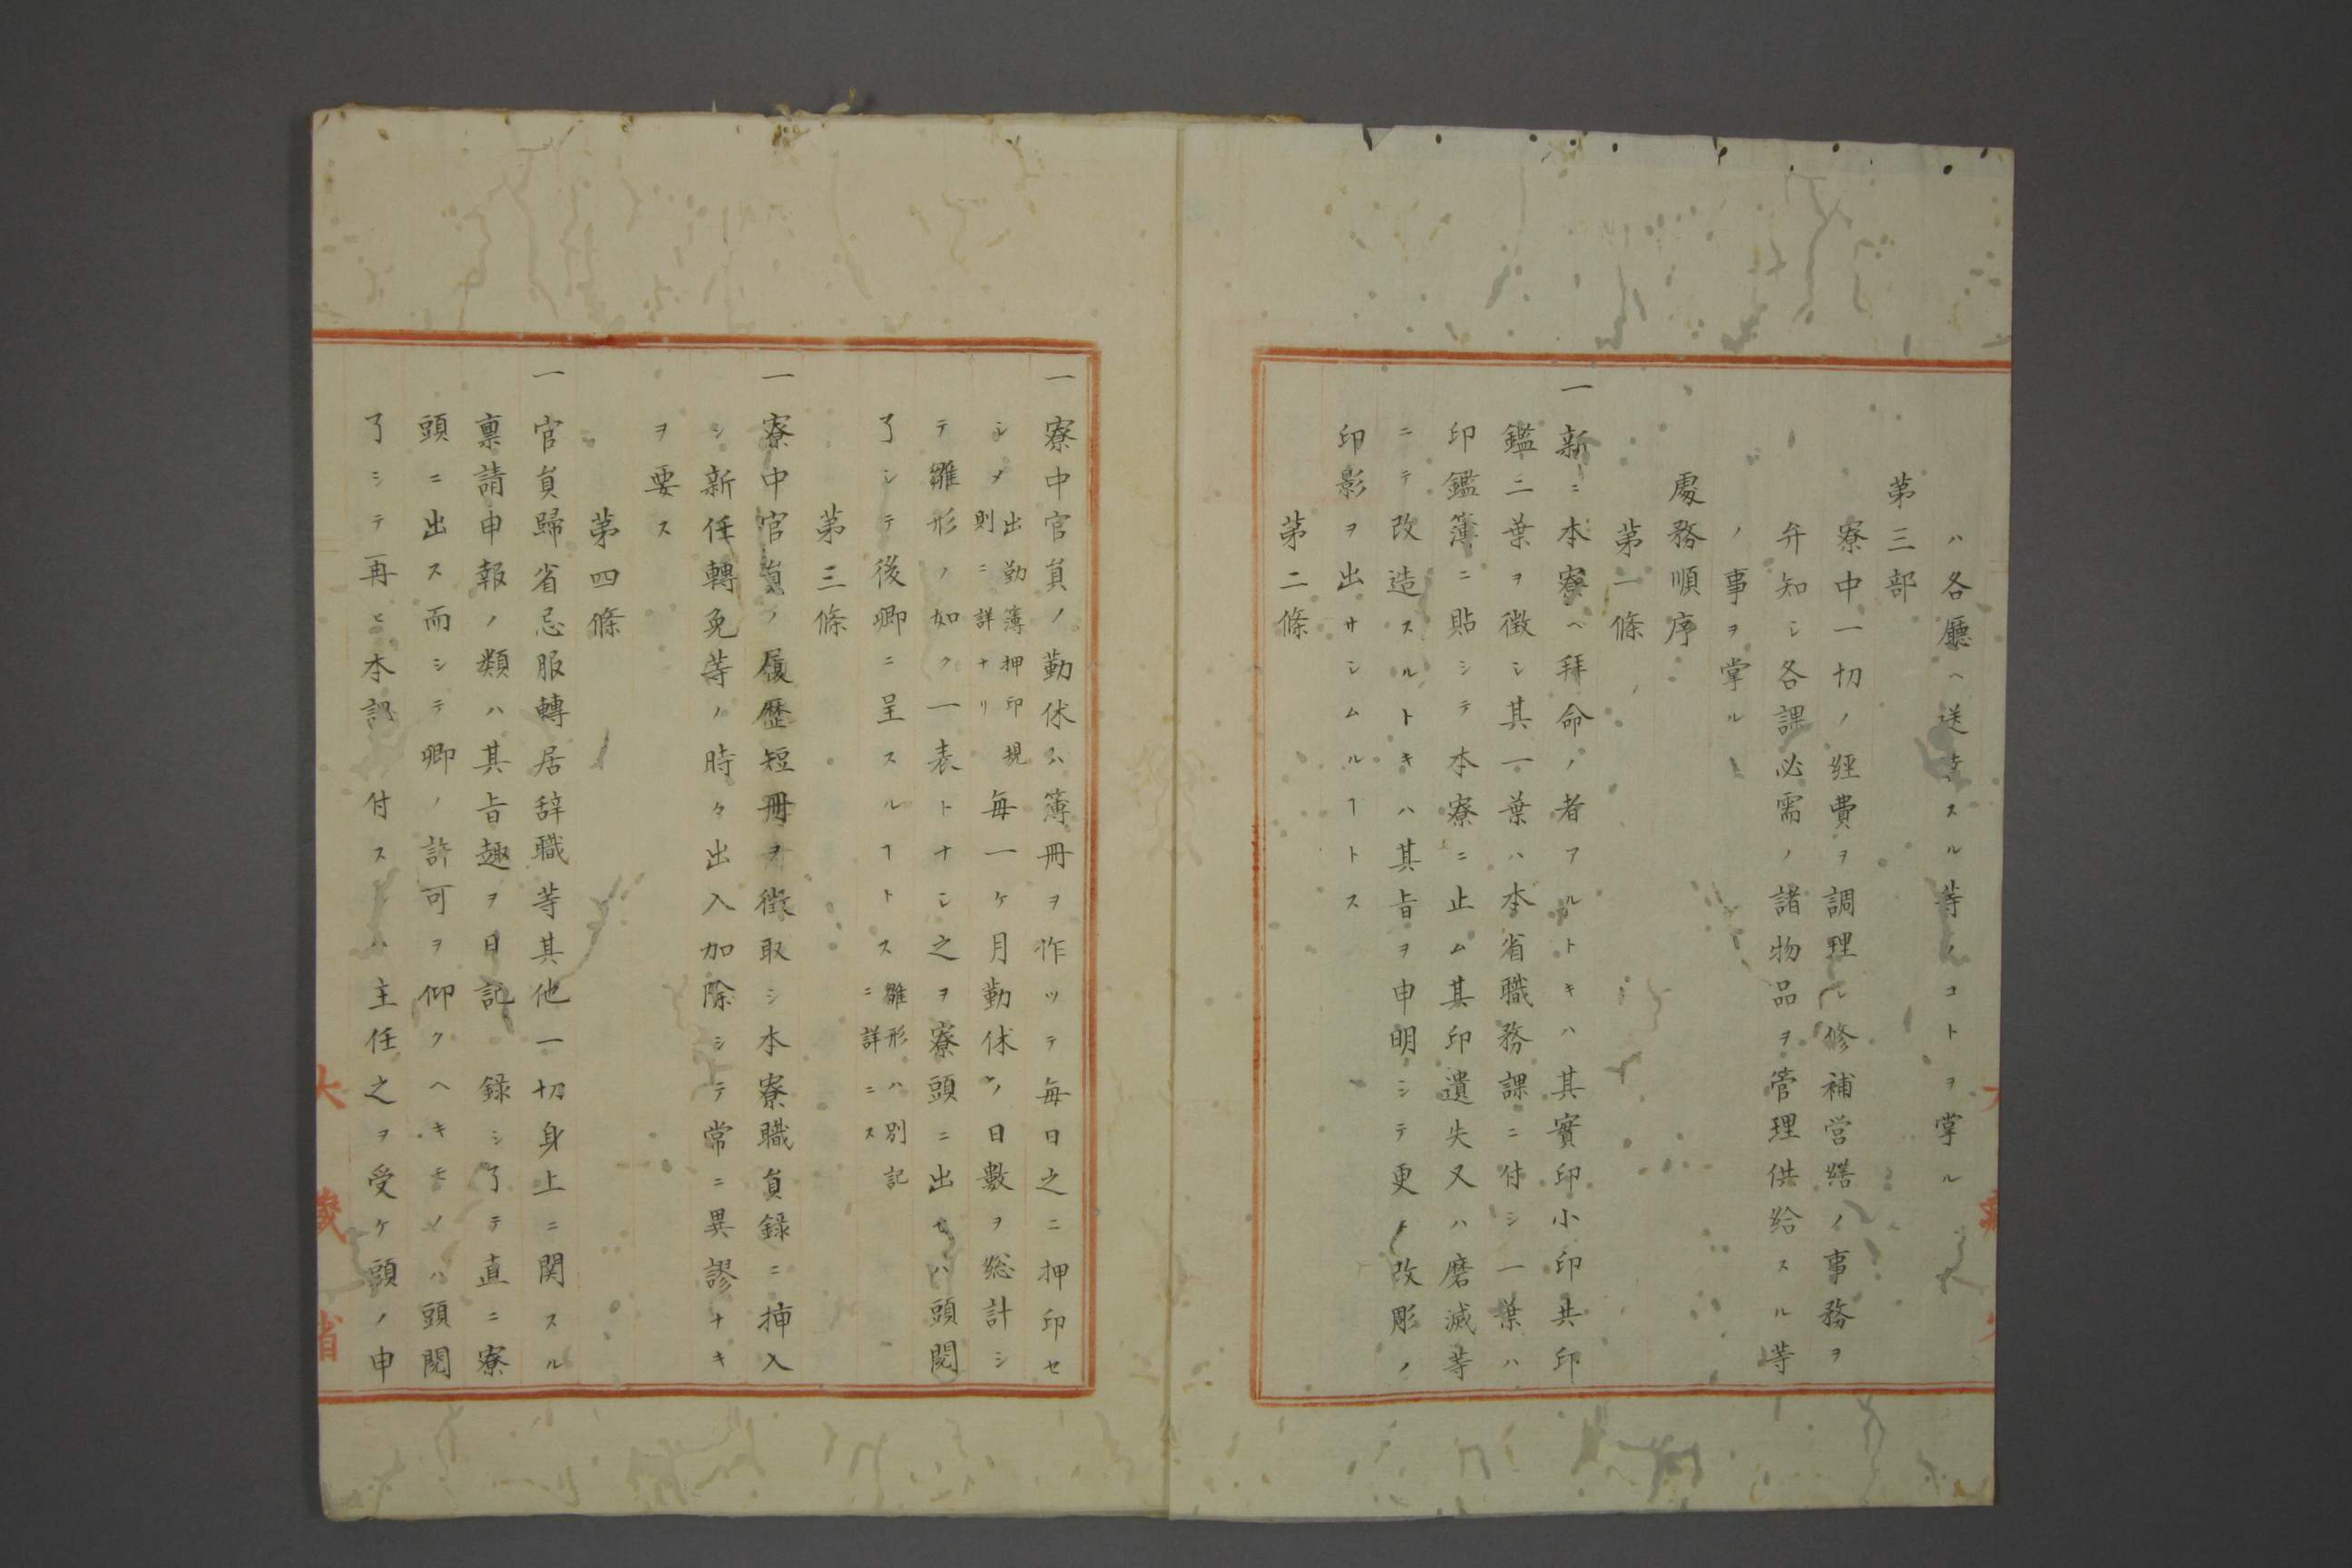 ハ各廳ヘ送達スル等ノコトヲ掌ル
第三部
寮中一切ノ經費ヲ調理シ修補営繕ノ事務ヲ
弁知シ各課必需ノ諸物品ヲ管理供給スル等
ノ事ヲ掌ル
處務順序
第一條
一新ニ本寮ヘ拜命ノ者アルトキハ其實印小印共印
鑑二葉ヲ徴シ其一葉ハ本省職務課ニ付シ一葉ハ
印鑑簿ニ貼シテ本寮ニ止ム其印遺失又ハ磨滅等
ニテ改造スルトキハ其旨ヲ申明シテ更ニ改彫ノ
印影ヲ出サシムルヿトス
第二條
一寮中官員ノ勤休公簿冊ヲ作ツテ毎日之ニ押印セ
シメ出勤簿押印規則ニ詳ナリ毎一ケ月勤休ノ日數ヲ総計シ
テ雛形ノ如ク一表トナシ之ヲ寮頭ニ出セハ頭閲
了シテ後卿ニ呈スルヿトス雛形ハ別記ニ詳ニス
第三條
一寮中官員ノ履歴短冊ヲ徴取シ本寮職員録ニ挿入
シ新任轉免等ノ時々出入加除シテ常ニ異謬ナキ
ヲ要ス
第四條
一官員歸省忌服轉居辞職等其他一切身上ニ関スル
稟請申報ノ類ハ其旨趣ヲ日記録シ了テ直ニ寮
頭ニ出ス而シテ卿ノ許可ヲ仰クヘキモノハ頭閲
了シテ再ヒ本部付スレハ主任之ヲ受ケ頭ノ申
大藏省